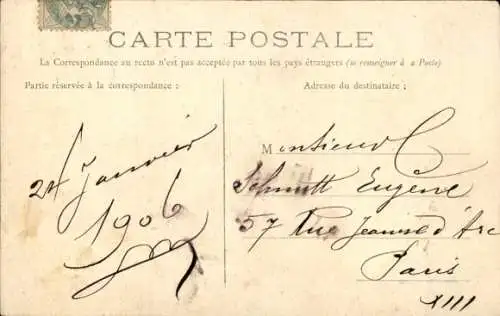 CARTE POSTALE
La Correspondance au recto n'est pas acceptée par tous les pays étrangers (se renseigner à la Poste)
Partie réservée à la correspondance :
24 Janvier
1906
Adresse du destinataire :
Monsieur
Schmitt Eugène
57 Rue Jeanne d'Arc
Paris
XIII